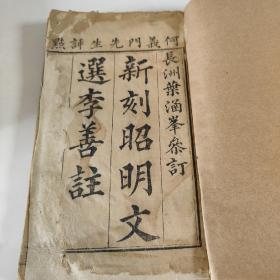 何義門先生評點
長洲葉涵峯叅訂
新刻昭明文
選李善註